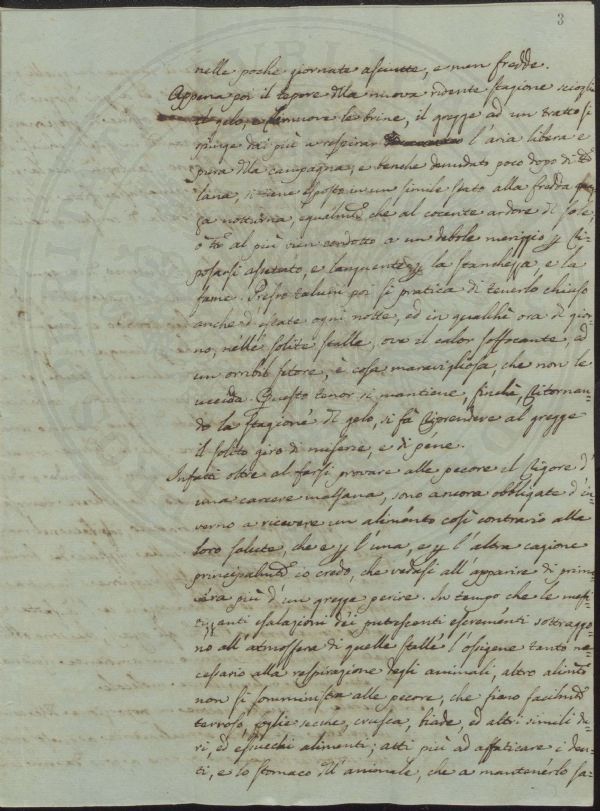 3
nelle poche giornate asciutte, e men fredde.
Appena poi il tepore dlla nuova ridente stagione scioglie
gelo, e le brine, il gregge ad un tratto si
spinge dai più a respirar l'aria libera e
pura dlla campagna, e benche denudato poco dopo di
lana, viene esposto in un simile stato alla fredda
notturna, egualmte che al cocente ardore di sole,
ò al più vien condotto a un debole meriggio p ri=
posarsi assetato, e languente p la stanchezza e la
fame. Presso taluni poi si pratica di tenerlo chiuso
anche d'estate ogni notte, ed in qualche ora di gior=
no, nelle solite stalle, ove il calor soffocante, ad
un orribil fetore, è cosa maravigliosa, che non le
uccida. Questo tenor si mantiene, finchè, ritornan=
do la stagione dl gelo, si fà riprendere al gregge
il solito giro di miserie, e di pene.
Infatti oltre al farsi provare alle pecore il rigore d'
una carcere malsana, sono ancora obbligate d'in=
verno a ricevere un alimento così contrario alla
loro salute, che e p l'una, e p l'altra cagione
principalmte io credo, che vedasi all'apparire di prima=
vera più d'un gregge perire. In tempo che le mefi=
tizzanti esalazioni dei putrescenti escrementi sottraggo=
no all'atmosfera di quelle stalle l'ossigene tanto ne=
cessario alla respirazione degli animali, altro alimto
non si somministra alle pecore, che fieno facilmte
terroso, foglie secche, crusca, biade, ed altri simili du=
ri, ed essucchi alimenti; atti più ad affaticare i den=
ti, e lo stomaco dll'animale, che a mantenerlo sa=